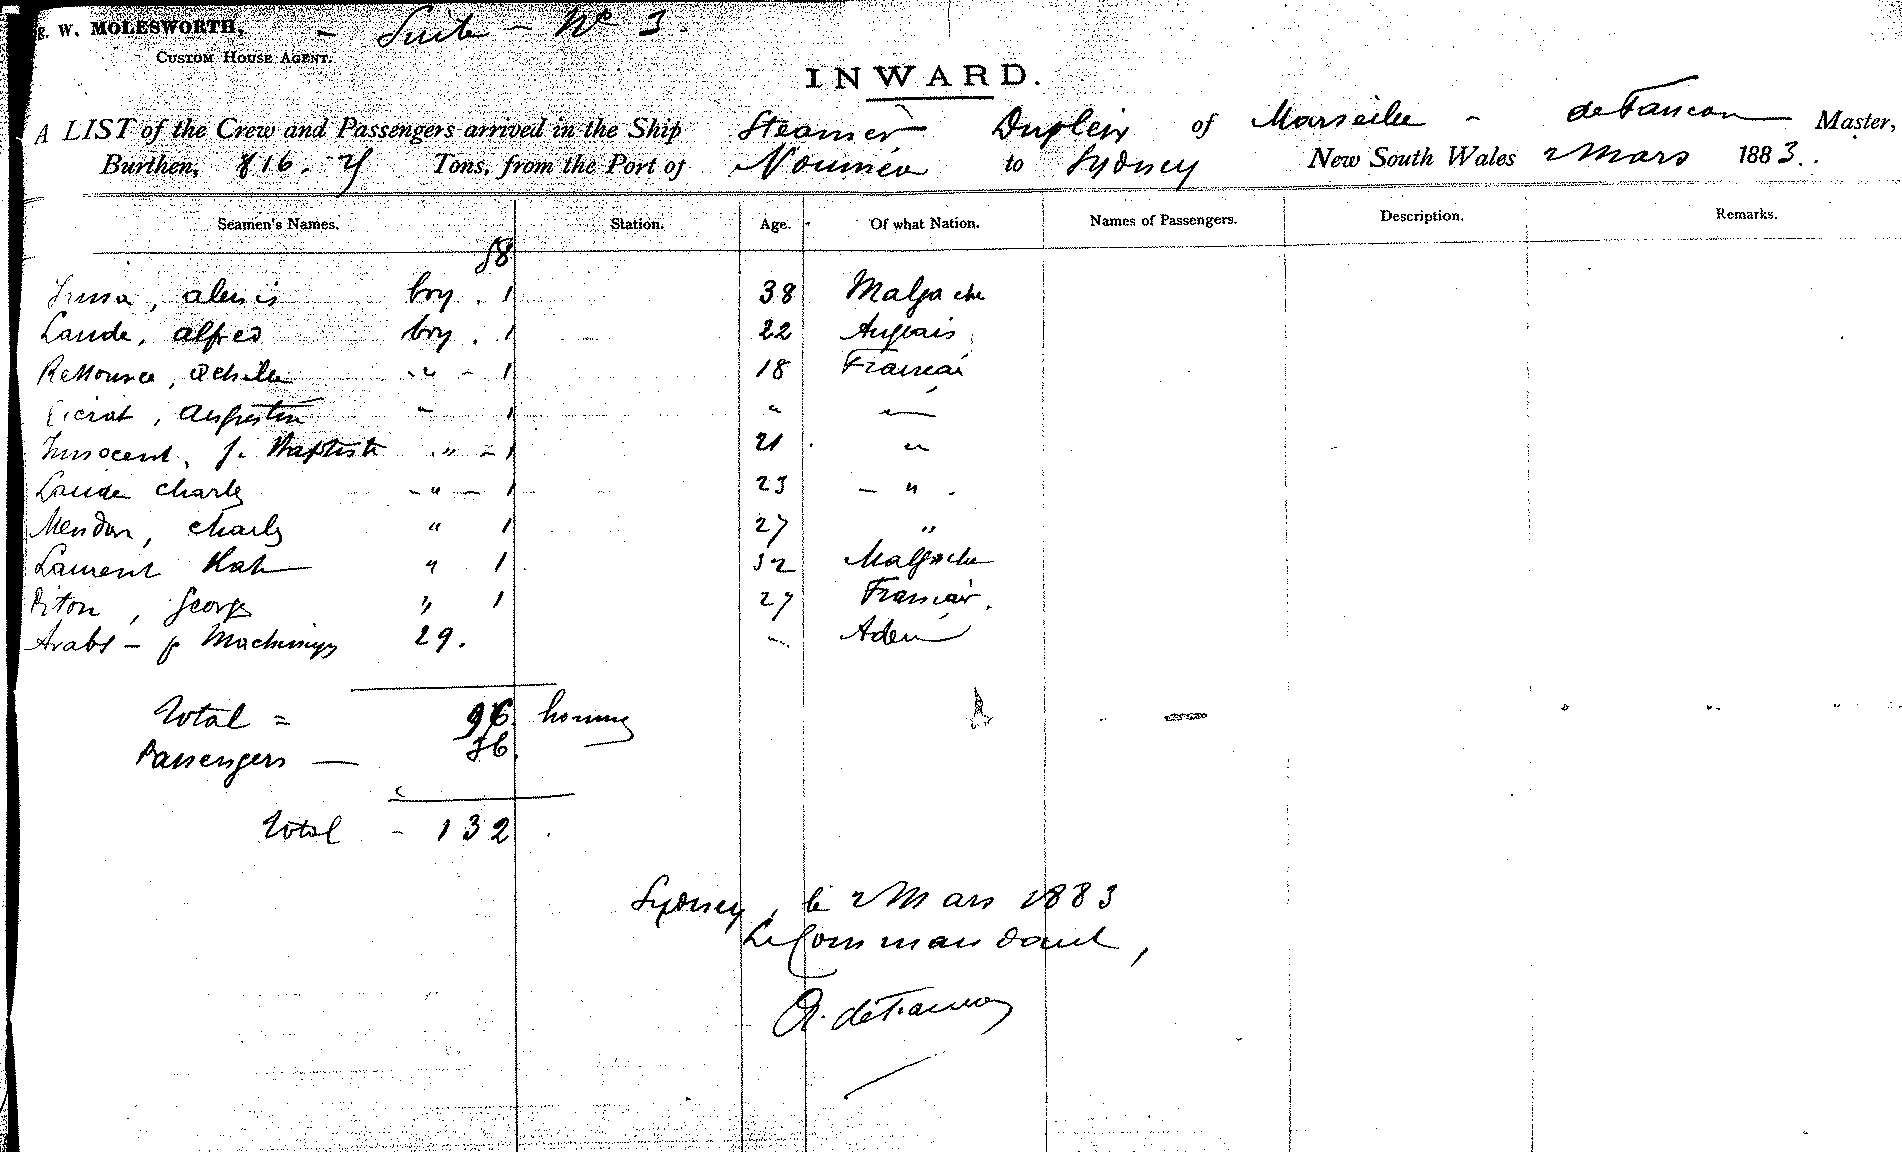 g. W. MOLESWORTH, - Suite - No 3.
CUSTOM HOUSE AGENT.
INWARD.
A LIST of the Crew and Passengers arrived in the Ship Steamer Dupleix of Marseille - de Master,
Burthen, 816. Tons, from the Port of Nouméa to Sydney New South Wales 2 Mars 1883.
Seamen's Names. Station. Age. Of what Nation. Names of Passengers. Description. Remarks.
58
alexis boy . 1 38 Malgache
Laude, alfred boy . 1 22 Anglais
achille " - 1 18 Français
augustin " 1 " "
Innocent, J. Baptiste " - 1 21 "
Laude Charles - " - 1 23 - " -
Charles " 1 27 "
Laurent " 1 32 Malgache
Piton, George " 1 27 Français.
Arabs - p 29. " Aden
Total = 96 hommes
Passengers — 36
Total - 132
Sydney, le 2 Mars 1883
Le Commandant,